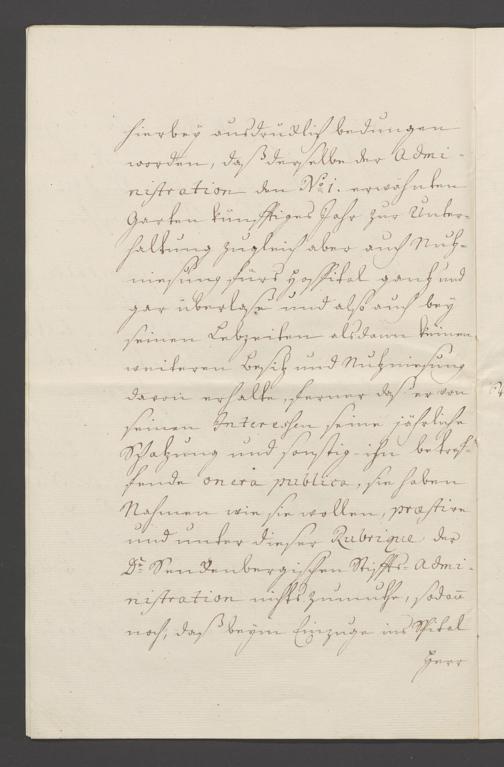 hierbey ausdrücklich bedungen
worden, daß derselbe der Admi-
nistration den No. 1. erwähnten
Garten künfftiges Jahr zur Unter-
haltung zugleich aber auch Nutz-
niesung fürs Hospital gantz und
gar überlaße und also auch bey
seinen Lebzeiten alsdann keinen
weiteren Besitz und Nutzniesung
davon erhalte, ferner daß er von
seinen Interessen seine jährliche
Schatzung und sonstig-ihn betref-
fende onera publica, sie haben
Nahmen wie sie wollen, præstire
und unter dieser Rubrique der
Dr. Senckenbergischen Stiffts-Admi-
nistration nichts zumuthe, sodann
noch, daß beym Einzuge ins Spital
Herr